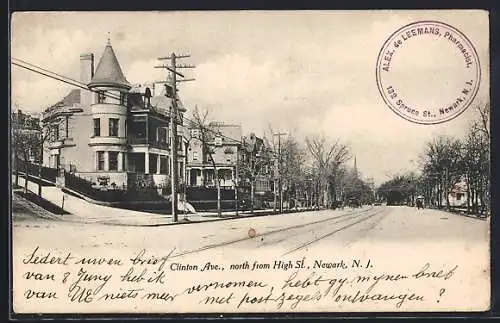 ALEX. de LEEMANS, Pharmacist,
132 Spruce St., Newark, N. J.
Clinton Ave., north from High St., Newark, N. J.
Sedert uwen brief
van 8 Juny heb ik
van U niets meer vernomen, hebt gy mynen brief
met postzegels ontvangen?